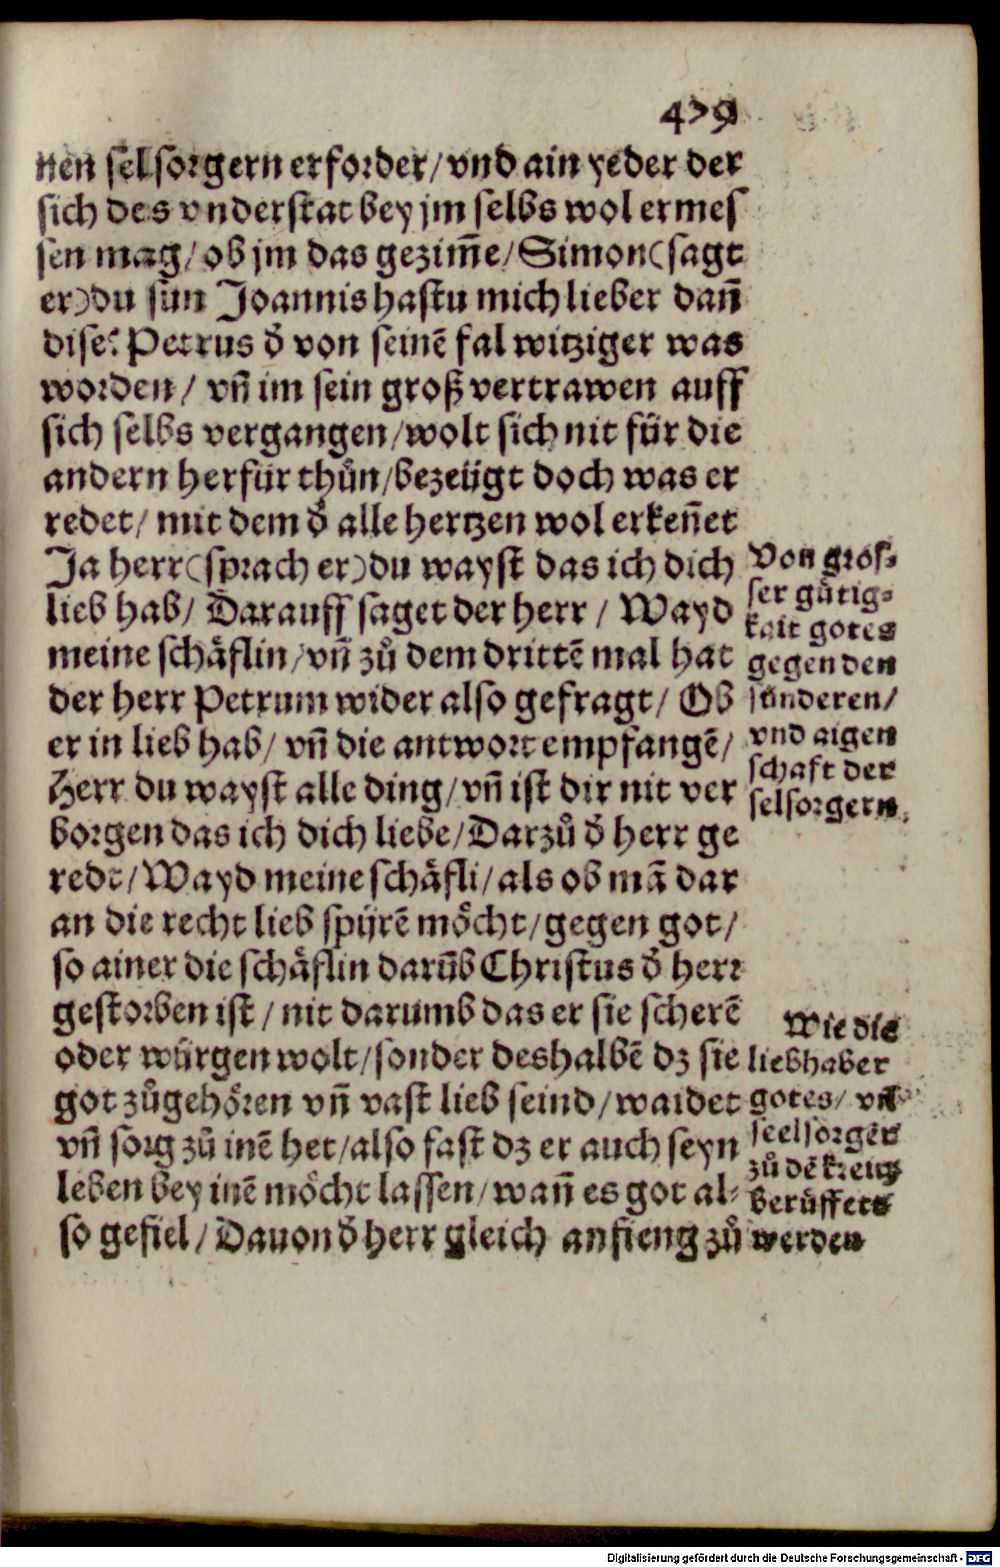 479
nen selsorgern erforder/ vnd ain yeder der
sich des vnderstat bey jm selbs wol ermes
sen mag/ ob jm das gezim̃e/ Simon (sagt
er) du sün Joannis hastu mich lieber dañ
dise? Petrus d̕ von seinẽ fal witziger was
worden/ vñ im sein groß vertrawen auff
sich selbs vergangen/ wolt sich nit für die
andern herfür thůn/ bezeügt doch was er
redet/ mit dem d̕ alle hertzen wol erkeñet
Ja herr (sprach er) du wayst das ich dich
lieb hab/ Darauff saget der herr/ Wayd
meine schäflin/ vñ zů dem drittẽ mal hat
der herr Petrum wider also gefragt/ Ob
er in lieb hab/ vñ die antwort empfangẽ/
Herr du wayst alle ding/ vñ ist dir nit ver
borgen das ich dich liebe/ Darzů d̕ herr ge
redt/ Wayd meine schäfli/ als ob mã dar
an die recht lieb spürẽ möcht/ gegen got/
so ainer die schäflin darũb Christus d̕ herr
gestorben ist/ nit darumb das er sie scherẽ
oder würgen wolt/ sonder deshalbẽ dz sie
got zůgehören vñ vast lieb seind/ waidet
vñ sorg zů inẽ het/ also fast dz er auch seyn
leben bey inẽ möcht lassen/ wañ es got al-
so gefiel/ Dauon d̕ herr gleich anfieng zů
Von gros-
ser gütig-
kait gotes
gegen den
sünderen/
vnd aigen
schaft der
selsorgern.
Wie die
liebhaber
gotes/ vñ
seelsorger
zů dẽ kreutz
berüffets
werden
Digitalisierung gefördert durch die Deutsche Forschungsgemeinschaft - DFG